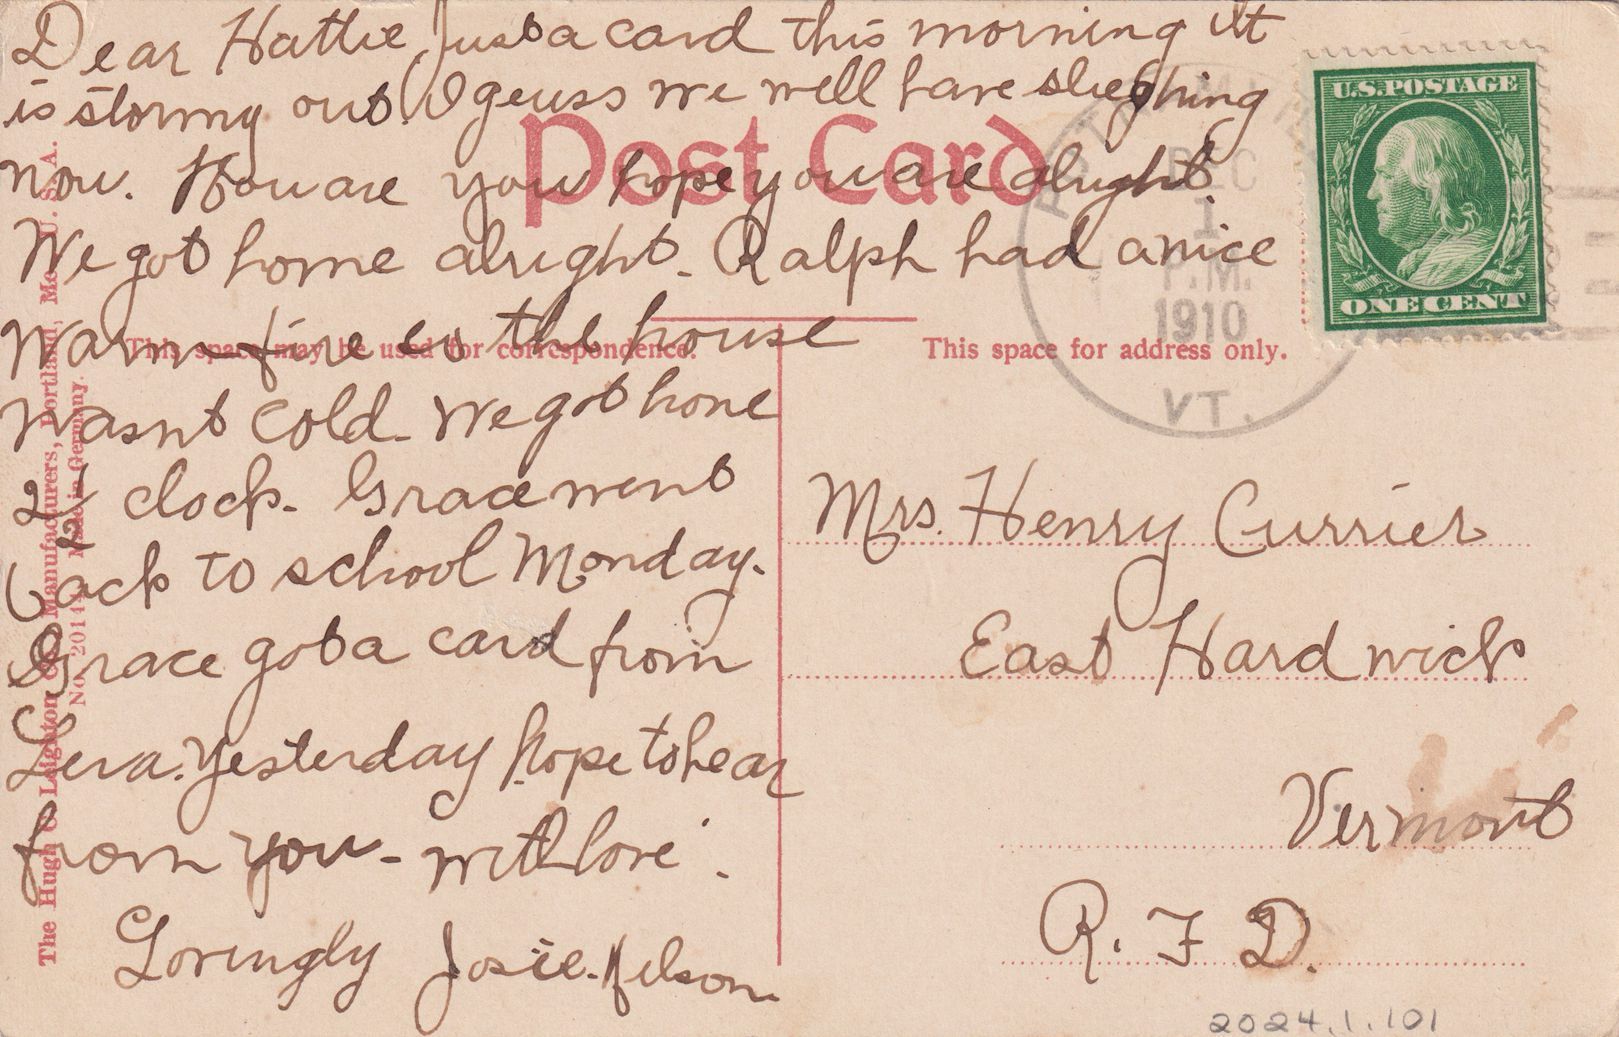 Dear Hattie Just a card this morning itt
is stormy out. I geuss we well have sleghing
now. How are you hope you are alright.
We got home alright. Ralph had a nice
warm fire so the house
wasnt cold. We got home
2 1/2 clock. Grace went
back to school Monday.
Grace got a card from
Lena. Yesterday hope to hear
from you - with love.
Lovingly Josie. Nelson.
Post Card
This space may be used for correspondence.
This space for address only.
The Hugh C. Leighton Co., Manufacturers, Portland, Me., U. S. A.
Made in Germany.
DEC
1
P.M.
1910
VT.
U.S.POSTAGE
ONE CENT
Mrs. Henry Currier
East Hardwick
Vermont
R. F D.
2024.1.101